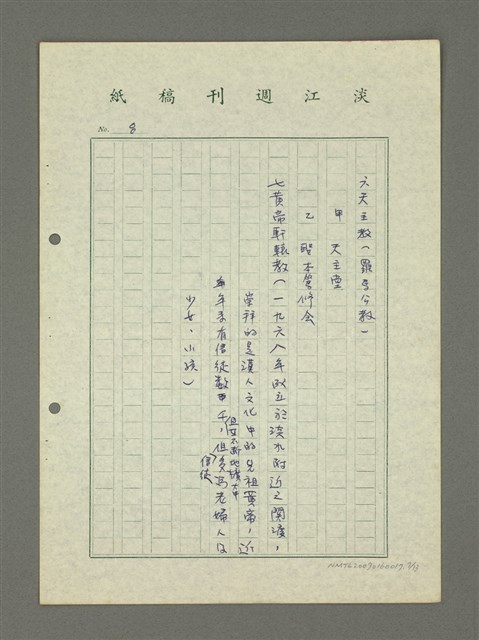 淡江週刊稿紙
No. 8
六天主教（羅馬公教）
甲　天主堂
乙　聖本篤修会
七黃帝軒轅教（一九六八年成立於淡水附近之関渡，
崇拜的是漢人文化中的先祖黃帝，近
年来有信徒数千，但多為老婦人及
且在不断地擴大中
信徒
少女、小孩）